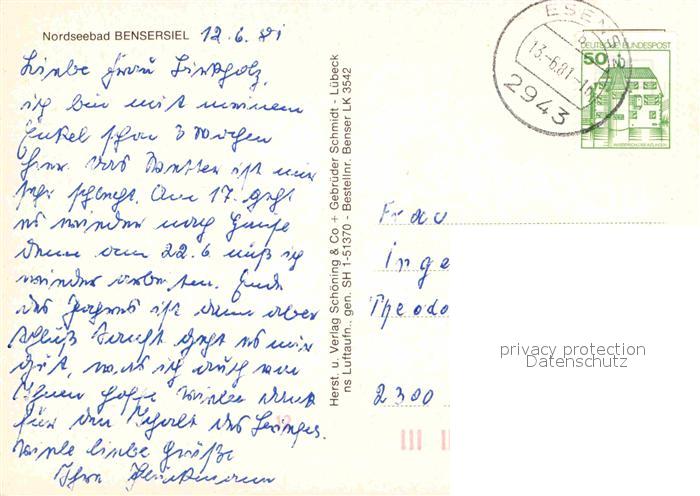 Nordseebad BENSERSIEL 12.6.81
Liebe Frau
ich bin mit meinem
Enkel schon 3 Wochen
hier. Das Wetter ist nur
sehr schlecht. Am 17. geht
es wieder nach Hause
denn am 22.6 muß ich
wieder arbeiten. Ende
des Jahres ist dann aber
Schluß. Sonst geht es mir
gut, was ich auch von
Ihnen hoffe. Vielen Dank
für den
Viele liebe Grüße
Ihre
Herst. u. Verlag Schöning & Co + Gebrüder Schmidt - Lübeck
ns Luftaufn., gen. SH 1-51370 - Bestellnr. Benser LK 3542
ESENS
13.-6.81.-
2943
DEUTSCHE BUNDESPOST
50
Frau
Inge
Theodo
2300
privacy protection
Datenschutz